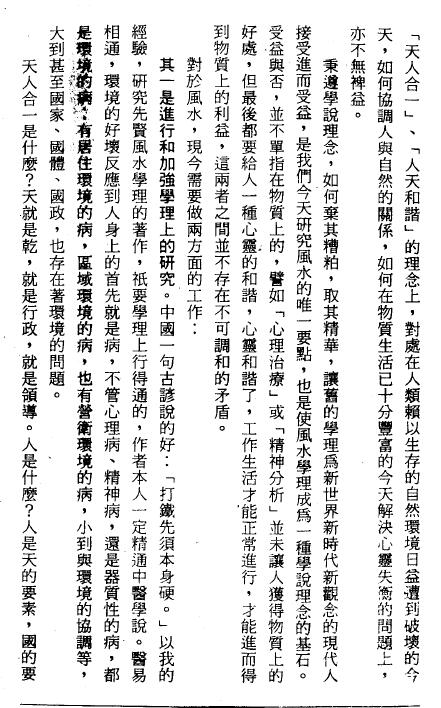 「天人合一」、「人天和諧」的理念上，對處在人類賴以生存的自然環境日益遭到破壞的今
天，如何協調人與自然的關係，如何在物質生活已十分豐富的今天解決心靈失衡的問題上，
亦不無裨益。
秉遵學說理念，如何棄其糟粕，取其精華，讓舊的學理爲新世界新時代新觀念的現代人
接受進而受益，是我們今天研究風水的唯一要點，也是使風水學理成爲一種學說理念的基石。
受益與否，並不單指在物質上的，譬如「心理治療」或「精神分析」並未讓人獲得物質上的
好處，但最後都要給人一種心靈的和諧，心靈和諧了，工作生活才能正常進行，才能進而得
到物質上的利益，這兩者之間並不存在不可調和的矛盾。
對於風水，現今需要做兩方面的工作：
其一是進行和加強學理上的研究。中國一句古諺說的好：「打鐵先須本身硬。」以我的
經驗，研究先賢風水學理的著作，祇要學理上行得通的，作者本人一定精通中醫學說。醫易
相通，環境的好壞反應到人身上的首先就是病，不管心理病、精神病，還是器質性的病，都
是環境的病，有居住環境的病，區域環境的病，也有營衛環境的病，小到與環境的協調等，
大到甚至國家、國體、國政，也存在著環境的問題。
天人合一是什麼？天就是乾，就是行政，就是領導。人是什麼？人是天的要素，國的要